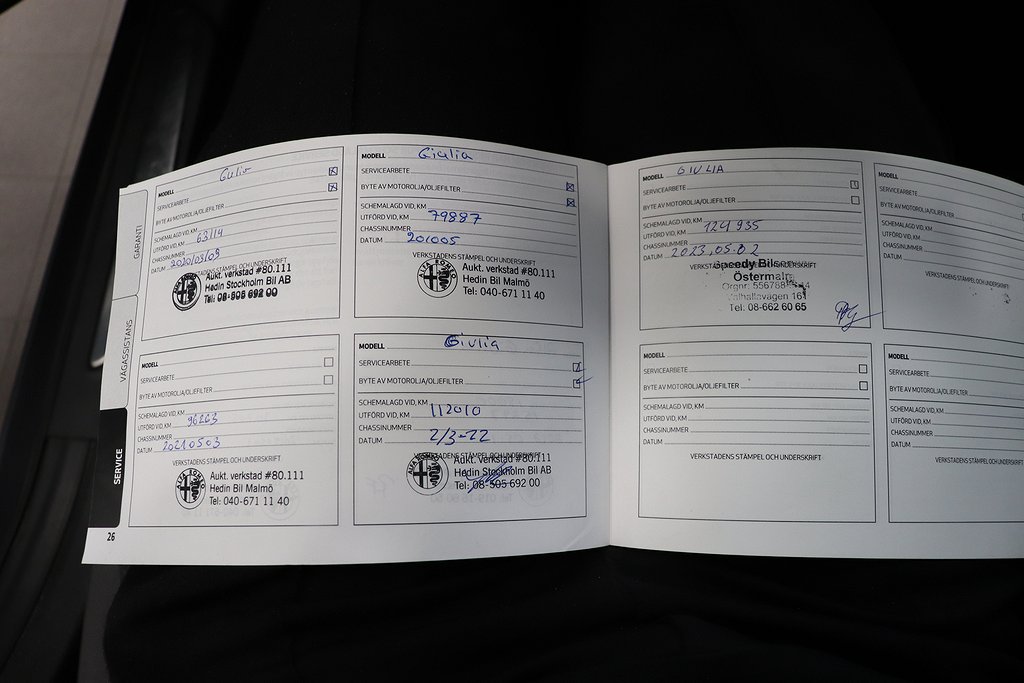 GARANTI
VÄGASSISTANS
SERVICE
26
MODELL Gulia
SERVICEARBETE
BYTE AV MOTOROLJA/OLJEFILTER
SCHEMALAGD VID, KM
UTFÖRD VID, KM 63114
CHASSINUMMER
DATUM 2020/03/09
VERKSTADENS STÄMPEL OCH UNDERSKRIFT
Aukt. verkstad #80.111
Hedin Stockholm Bil AB
Tel: 08-505 692 00
MODELL Giulia
SERVICEARBETE
BYTE AV MOTOROLJA/OLJEFILTER
SCHEMALAGD VID, KM
UTFÖRD VID, KM 79887
CHASSINUMMER
DATUM 201005
VERKSTADENS STÄMPEL OCH UNDERSKRIFT
ALFA ROMEO
Aukt. verkstad #80.111
Hedin Bil Malmö
Tel: 040-671 11 40
MODELL
SERVICEARBETE
BYTE AV MOTOROLJA/OLJEFILTER
SCHEMALAGD VID, KM
UTFÖRD VID, KM 96263
CHASSINUMMER
DATUM 20210503
VERKSTADENS STÄMPEL OCH UNDERSKRIFT
ALFA ROMEO
Aukt. verkstad #80.111
Hedin Bil Malmö
Tel: 040-671 11 40
MODELL Giulia
SERVICEARBETE
BYTE AV MOTOROLJA/OLJEFILTER
SCHEMALAGD VID, KM
UTFÖRD VID, KM 112010
CHASSINUMMER
DATUM 2/3-22
VERKSTADENS STÄMPEL OCH UNDERSKRIFT
ALFA ROMEO
Aukt. verkstad #80.111
Hedin Stockholm Bil AB
Tel: 08-505 692 00
MODELL GIULIA
SERVICEARBETE
BYTE AV MOTOROLJA/OLJEFILTER
SCHEMALAGD VID, KM
UTFÖRD VID, KM 124 935
CHASSINUMMER
DATUM 2023,05.02
VERKSTADENS STÄMPEL OCH UNDERSKRIFT
Speedy Bilservice
Östermalm
Orgnr: 556788
Valhallavägen 161
Tel. 08-662 60 65
MODELL
SERVICEARBETE
BYTE AV MOTOROLJA/OLJEFILTER
SCHEMALAGD VID, KM
UTFÖRD VID, KM
CHASSINUMMER
DATUM
VERKSTADENS STÄMPEL OCH UNDERSKRIFT
MODELL
SERVICEARBETE
BYTE AV MOTOROLJA/OLJEFILTER
SCHEMALAGD VID, KM
UTFÖRD VID, KM
CHASSINUMMER
DATUM
VERKSTADENS STÄMPEL OCH UNDERSKRIFT
MODELL
SERVICEARBETE
BYTE AV MOTOROLJA/OLJEFILTER
SCHEMALAGD VID, KM
UTFÖRD VID, KM
CHASSINUMMER
DATUM
VERKSTADENS STÄMPEL OCH UNDERSKRIFT